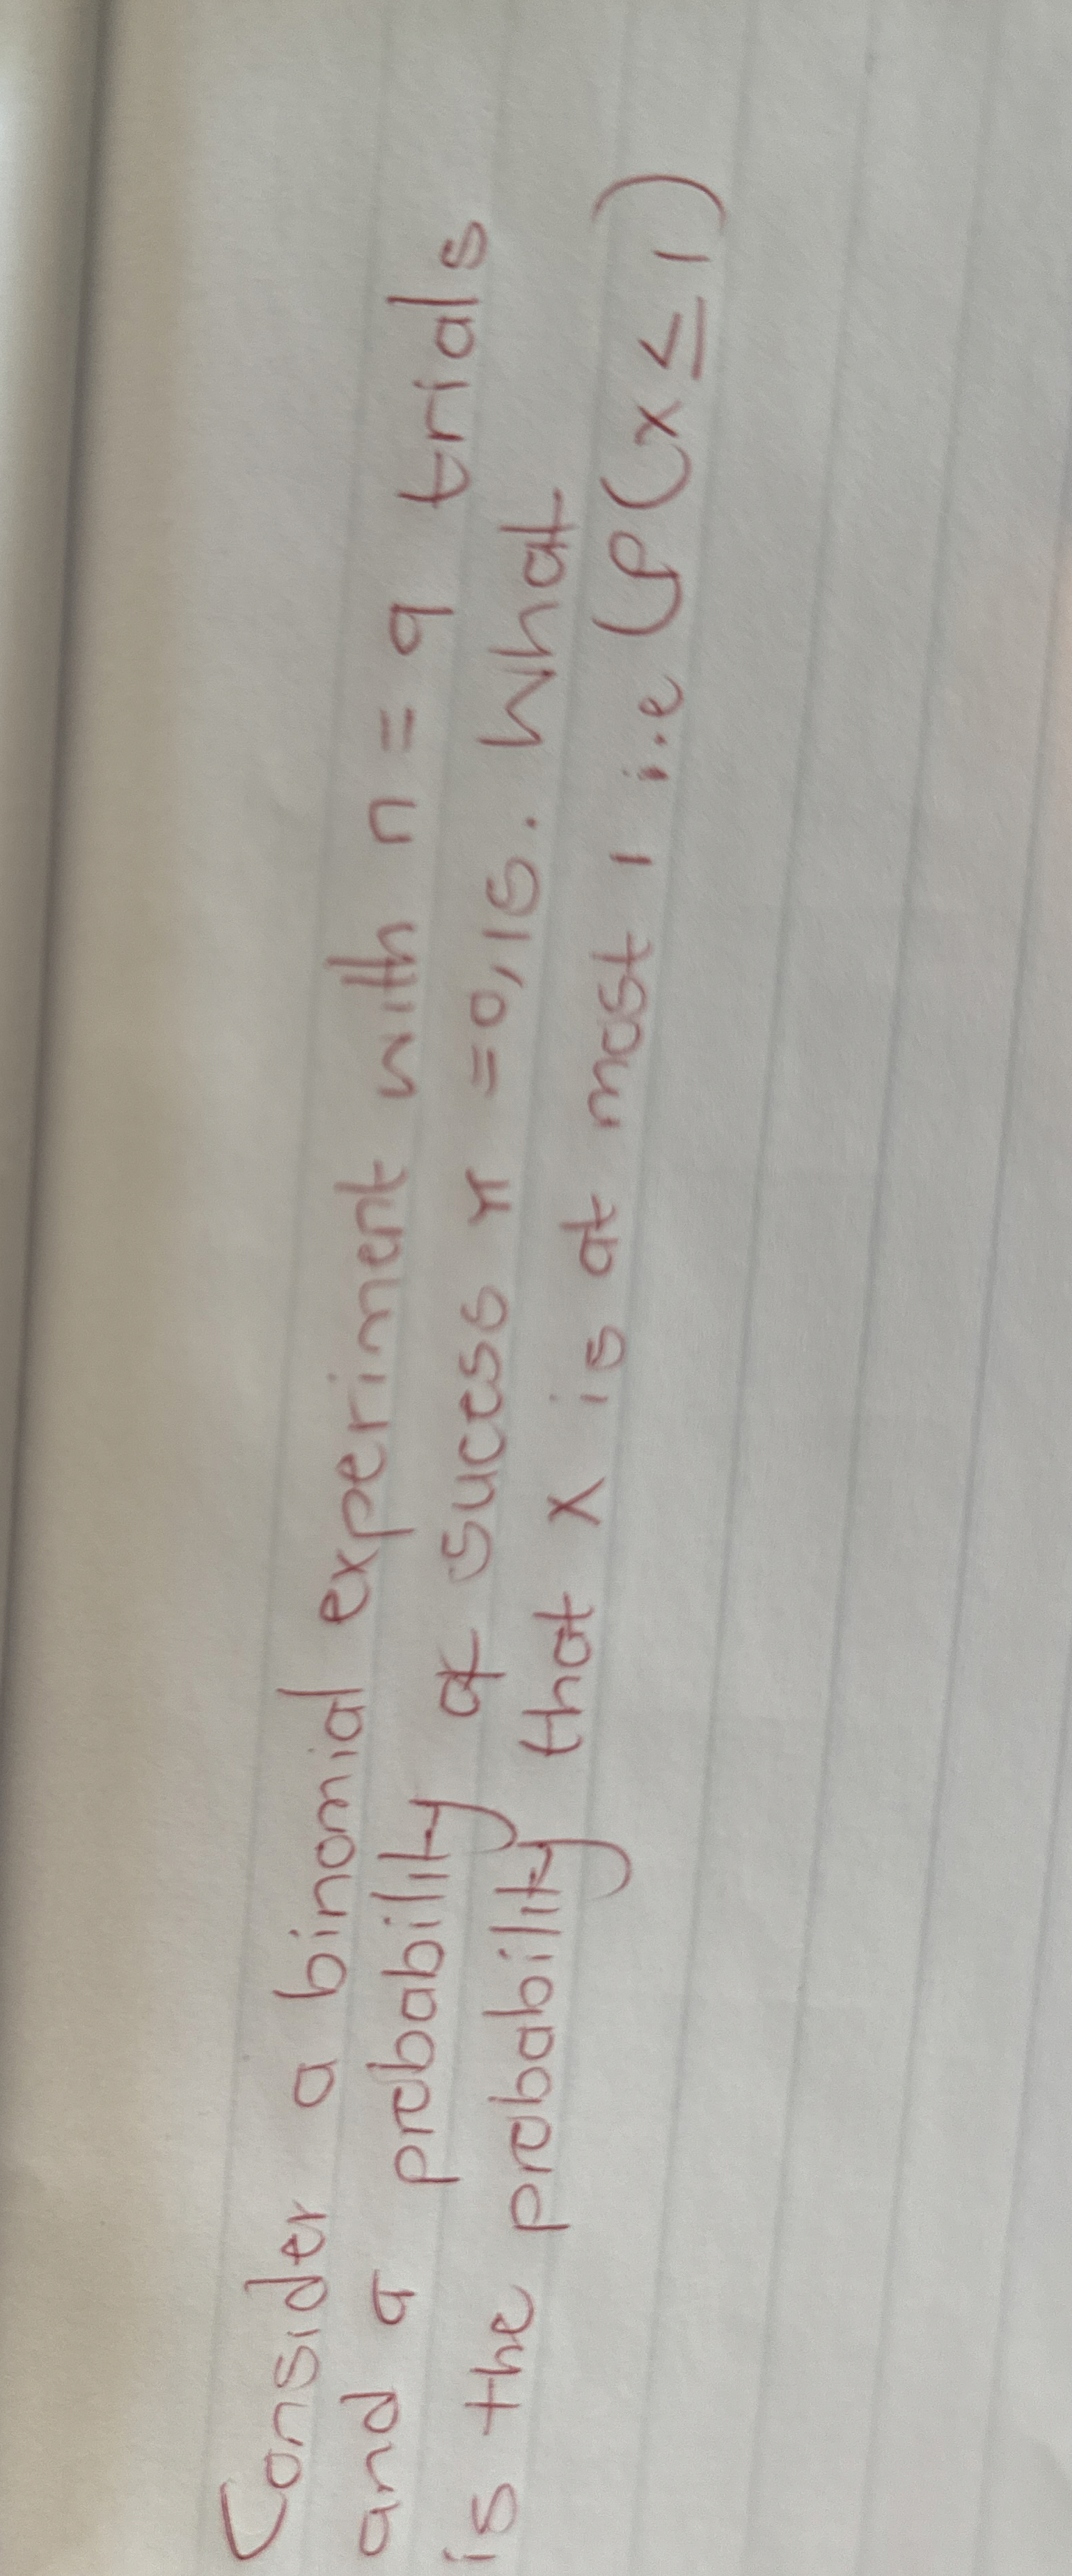 Consider a binomial experiment with n = 9 trials
and a probability of sucess π = 0,15. What
is the probability that x is at most 1 i.e (P(x ≤ 1)